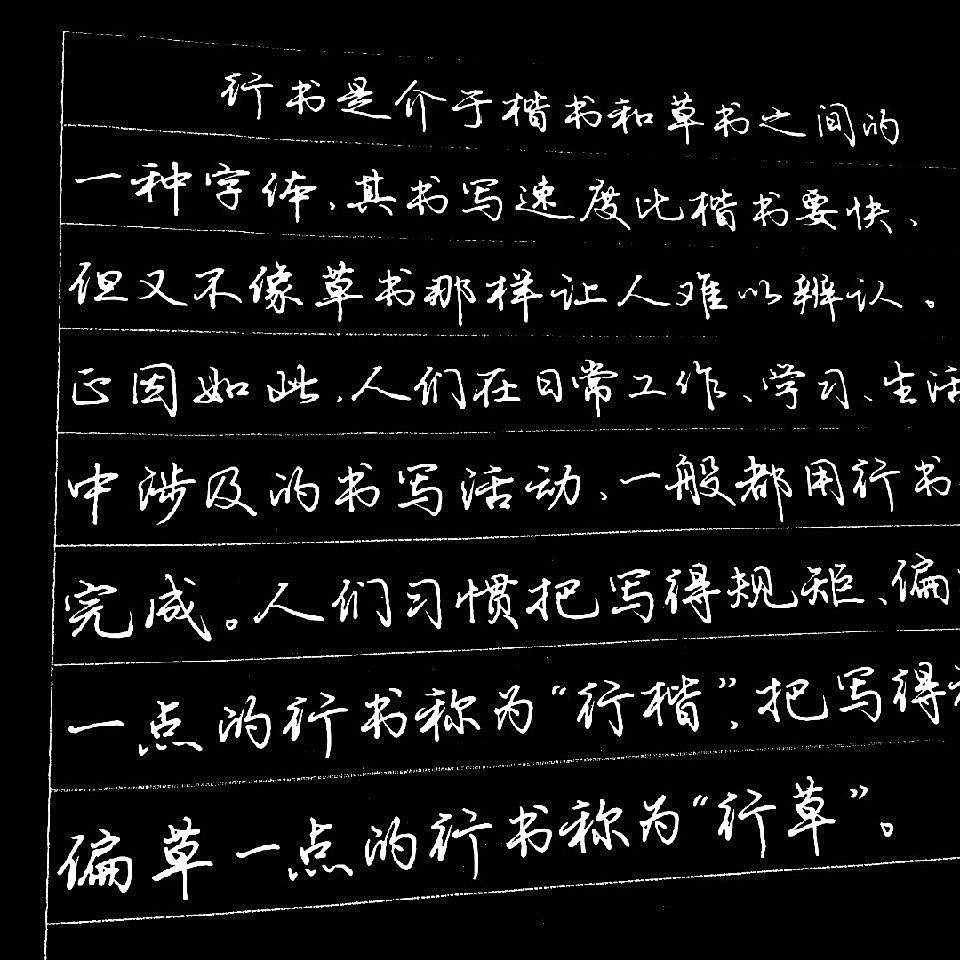 行书是介于楷书和草书之间的
一种字体,其书写速度比楷书要快,
但又不像草书那样让人难以辨认。
正因如此,人们在日常工作、学习、生活
中涉及的书写活动,一般都用行书
完成。人们习惯把写得规矩、偏
一点的行书称为“行楷”,把写得
偏草一点的行书称为“行草”。